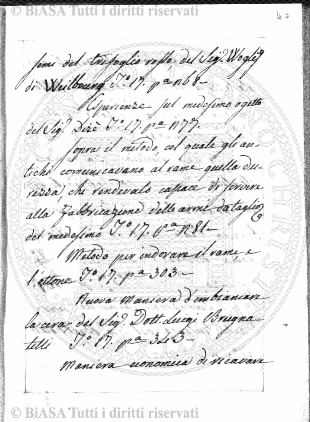 © BiASA Tutti i diritti riservati
semi del trifoglio rosso del Sig.r Vogler
di Weilbourg T.o 17. p.a 168.
Esperienze sul medesimo ogetto
del Sig.r Dizè T.o 17. p.a 177.
Sopra il metodo, col quale gli an-
tichi comunicavano al rame quella du-
rezza che rendevalo capace di servire
alla Fabbricazione delle armi da taglio
del medesimo T.o 17. p.a 181.
Metodo per indorare il rame e
l'ottone T.o 17. p.a 303.
Nuova maniera d'imbiancare
la cera, del Sig.r Dott. Luigi Brugna-
telli T.o 17. p.a 343.
Maniera economica di ricavare
© BiASA Tutti i diritti riservati